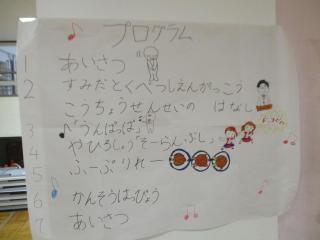 プログラム
1 あいさつ
2 すみだとくべつしえんがっこう
こうちょうせんせいの はなし
3 「うんぱっぱ」
4 やひろしょう「そーらんぶし」
5 ふーぷりれー
6 かんそうはっぴょう
7 あいさつ